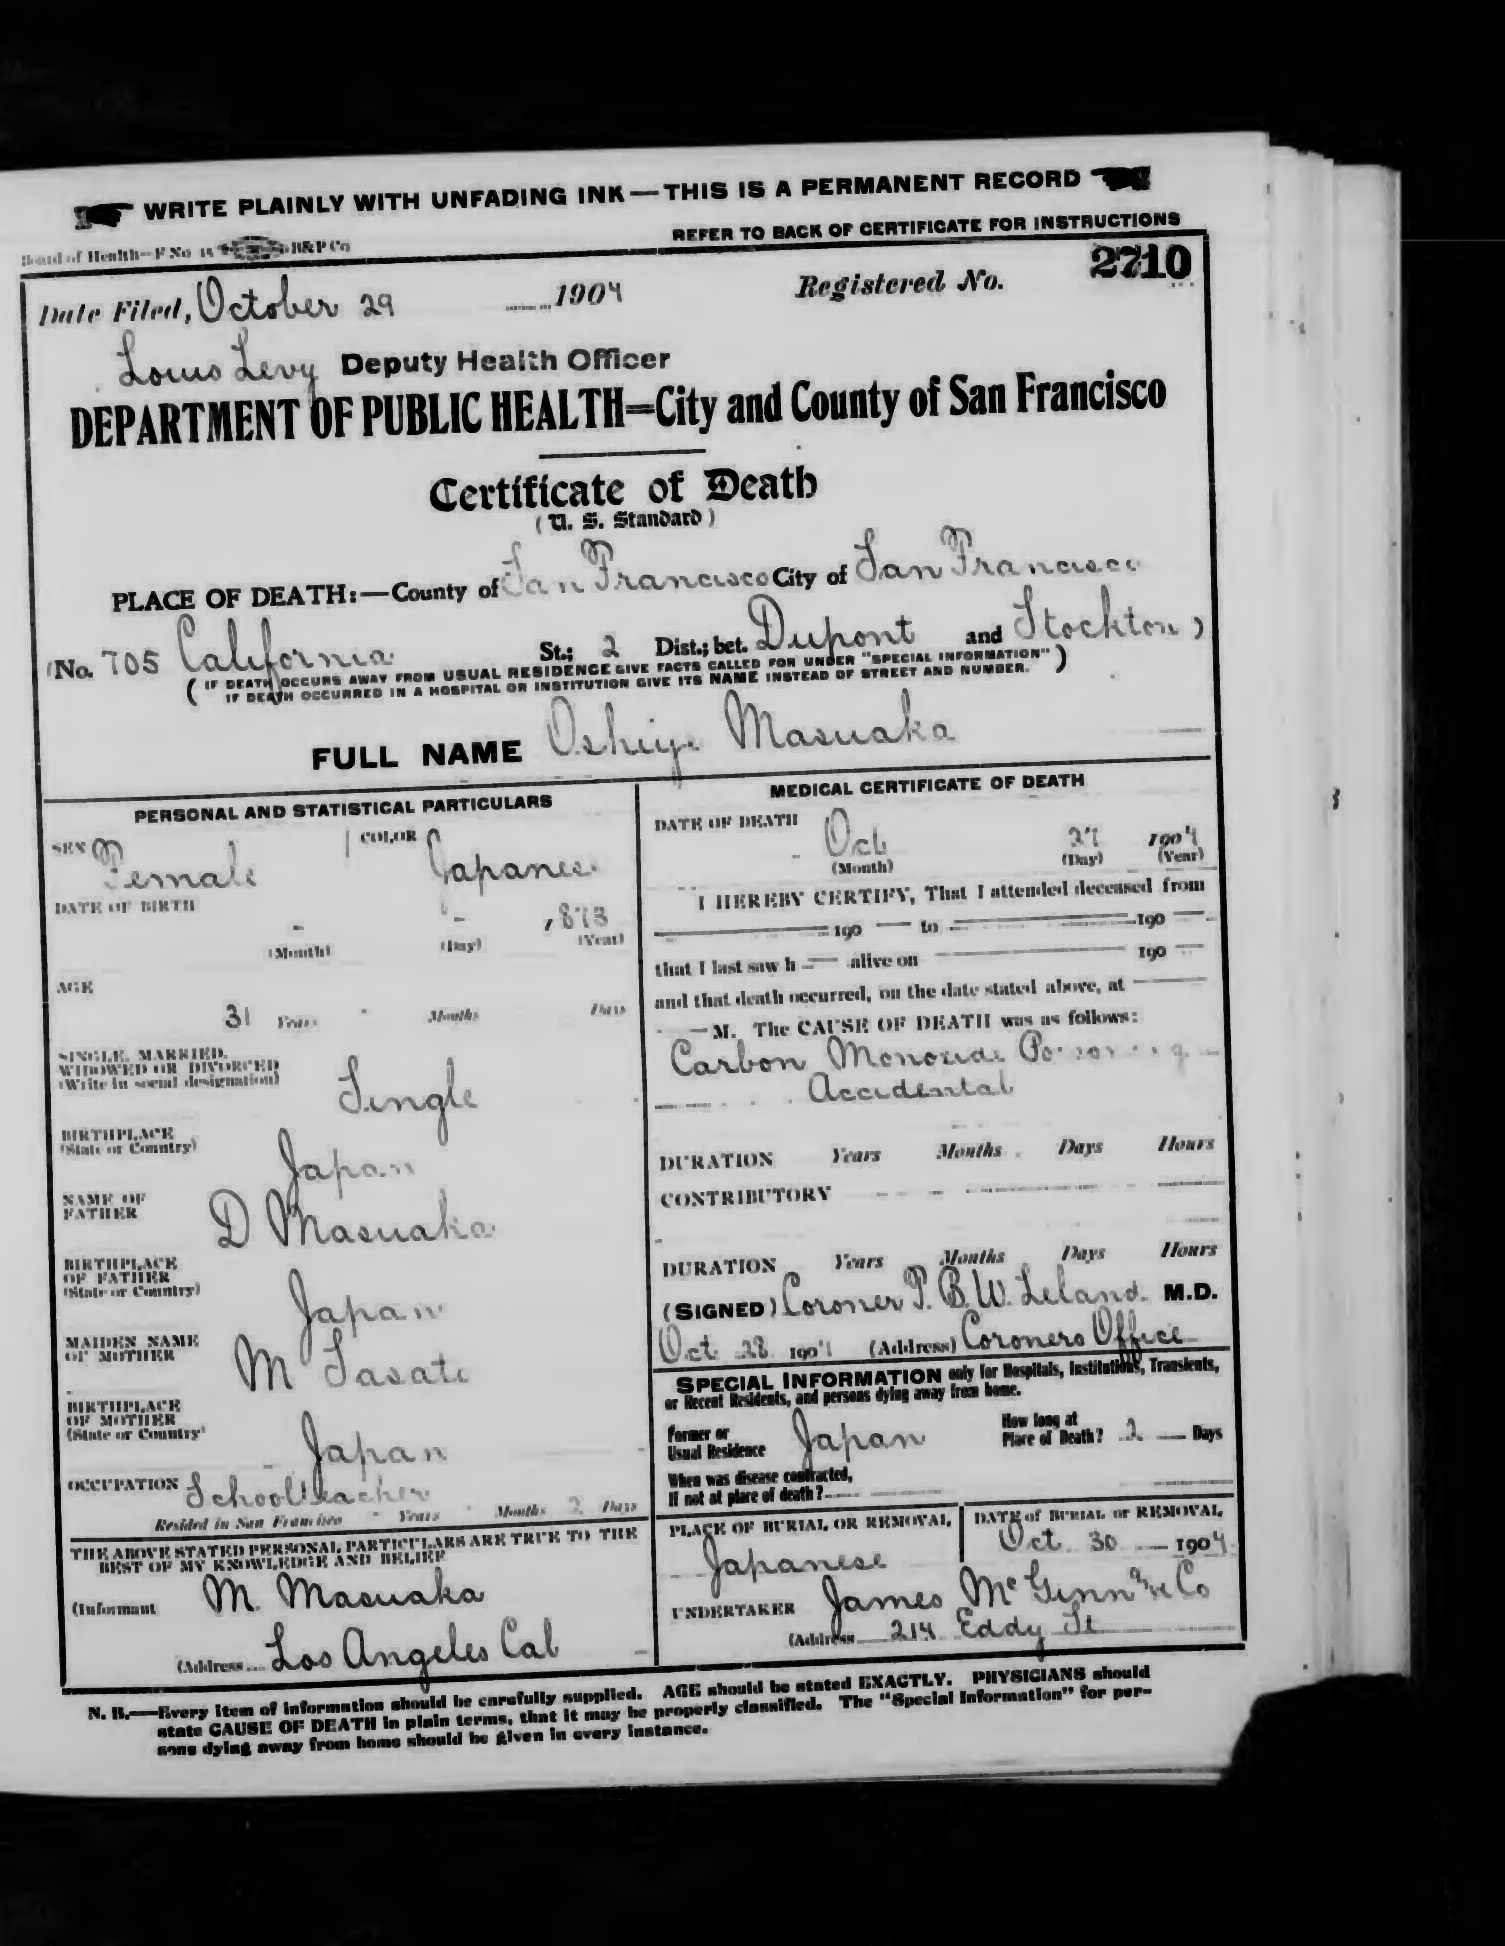 WRITE PLAINLY WITH UNFADING INK—THIS IS A PERMANENT RECORD
REFER TO BACK OF CERTIFICATE FOR INSTRUCTIONS
Board of Health—F No 15 H&P Co
2710
Date Filed, October 29 1904 Registered No.
Louis Levy Deputy Health Officer
DEPARTMENT OF PUBLIC HEALTH=City and County of San Francisco
Certificate of Death
(U. S. Standard)
PLACE OF DEATH:—County of San Francisco City of San Francisco
(No. 705 California St.; 2 Dist.; bet. Dupont and Stockton)
(IF DEATH OCCURS AWAY FROM USUAL RESIDENCE GIVE FACTS CALLED FOR UNDER "SPECIAL INFORMATION"
IF DEATH OCCURRED IN A HOSPITAL OR INSTITUTION GIVE ITS NAME INSTEAD OF STREET AND NUMBER.)
FULL NAME Oshiye Masuaka
PERSONAL AND STATISTICAL PARTICULARS
SEX Female COLOR Japanese
DATE OF BIRTH - - 1873
(Month) (Day) (Year)
AGE
31 Years Months Days
SINGLE, MARRIED,
WIDOWED OR DIVORCED
(Write in social designation) Single
BIRTHPLACE
(State or Country) Japan
NAME OF
FATHER D Masuaka
BIRTHPLACE
OF FATHER
(State or Country) Japan
MAIDEN NAME
OF MOTHER M Sasati
BIRTHPLACE
OF MOTHER
(State or Country) Japan
OCCUPATION Schoolteacher
Resided in San Francisco - Years - Months 2 Days
THE ABOVE STATED PERSONAL PARTICULARS ARE TRUE TO THE
BEST OF MY KNOWLEDGE AND BELIEF
(Informant M. Masuaka
(Address Los Angeles Cal
MEDICAL CERTIFICATE OF DEATH
DATE OF DEATH Oct 27 1904
(Month) (Day) (Year)
I HEREBY CERTIFY, That I attended deceased from
190 to 190
that I last saw h alive on 190
and that death occurred, on the date stated above, at
M. The CAUSE OF DEATH was as follows:
Carbon Monoxide Poisoning
Accidental
DURATION Years Months Days Hours
CONTRIBUTORY
DURATION Years Months Days Hours
(SIGNED) Coroner T. B. W. Leland M.D.
Oct 28 1904 (Address) Coroners Office
SPECIAL INFORMATION only for Hospitals, Institutions, Transients,
or Recent Residents, and persons dying away from home.
Former or
Usual Residence Japan How long at
Place of Death? 2 Days
When was disease contracted,
If not at place of death?
PLACE OF BURIAL OR REMOVAL Japanese
DATE of BURIAL or REMOVAL
Oct 30 1904
UNDERTAKER James McGinn & Co
(Address 214 Eddy St
N. B.—Every item of information should be carefully supplied. AGE should be stated EXACTLY. PHYSICIANS should
state CAUSE OF DEATH in plain terms, that it may be properly classified. The "Special Information" for per-
sons dying away from home should be given in every instance.